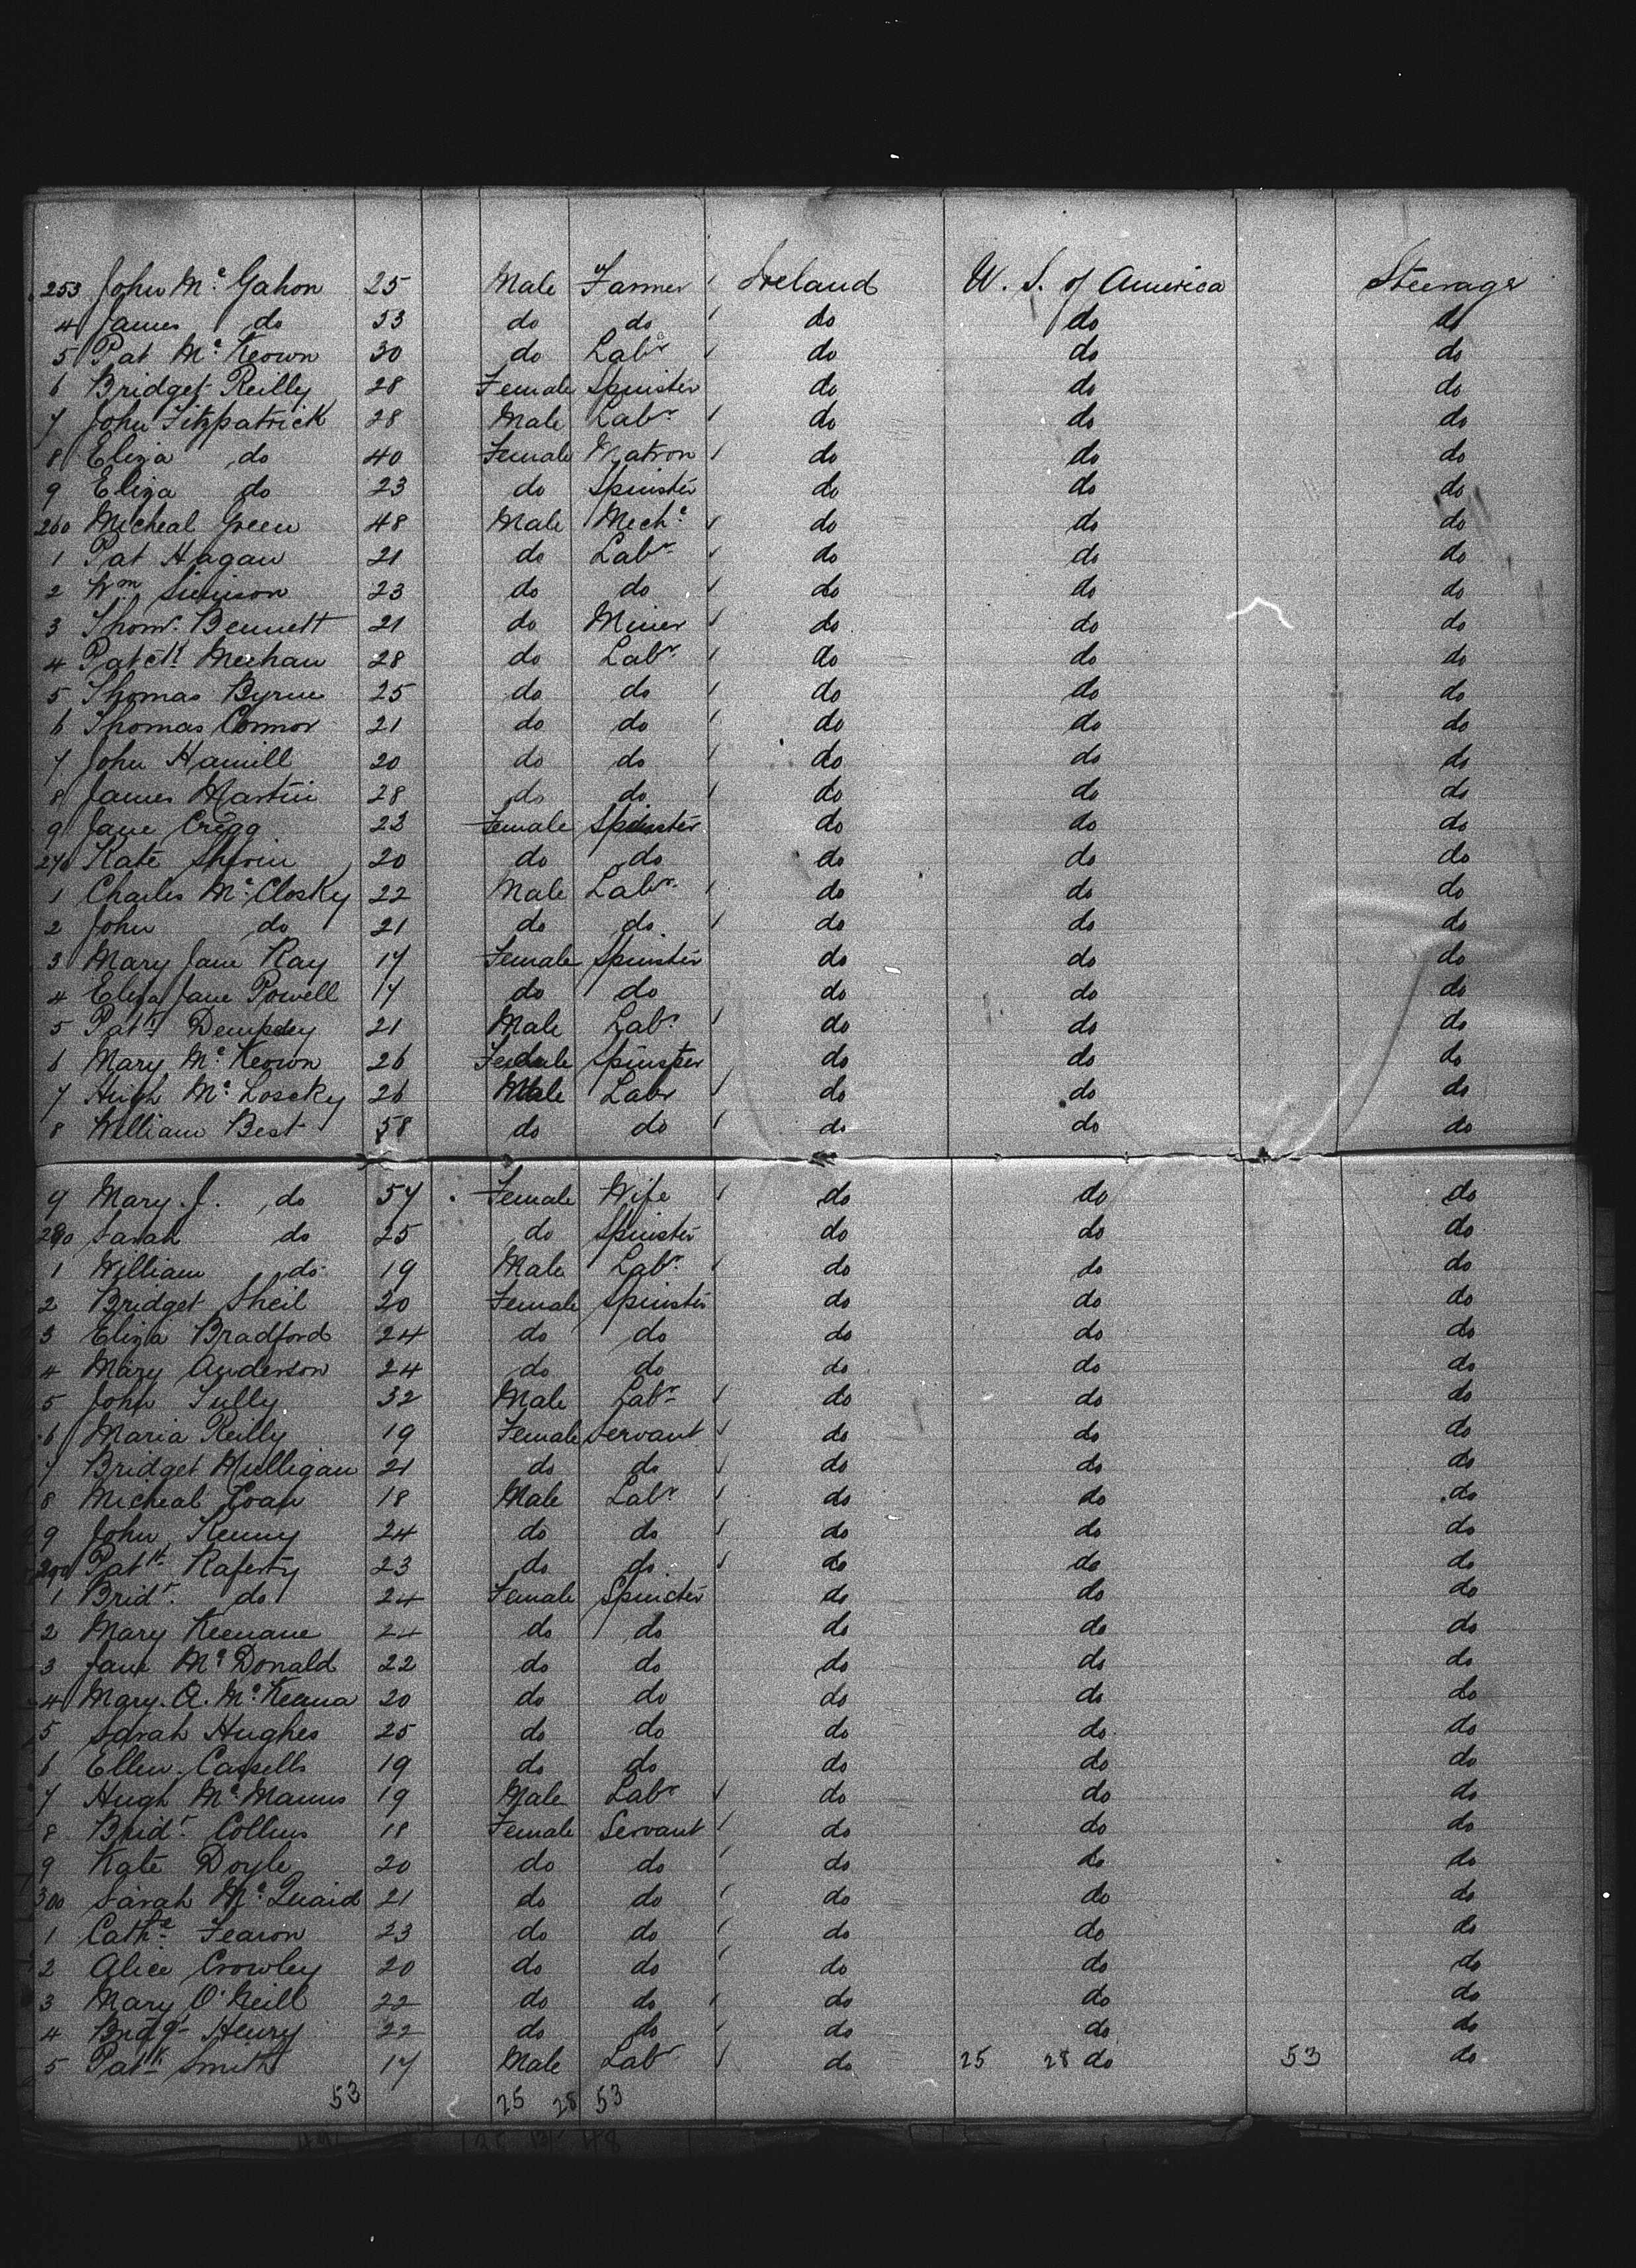 253 John Mc Gahon 25 Male Farmer Ireland U. S. of America Steerage
4 James do 33 do do do do do
5 Pat Mc Keown 30 do Labr do do do
6 Bridget Reilly 28 Female Spinster do do do
7 John Fitzpatrick 28 Male Labr do do do
8 Eliza do 40 Female Matron do do do
9 Eliza do 23 do Spinster do do do
260 Micheal Green 48 Male Mechc do do do
1 Pat Hagan 21 do Labr do do do
2 Wm Simison 23 do do do do do
3 Thoms Bennett 21 do Miner do do do
4 Patck Meehan 28 do Labr do do do
5 Thomas Byrne 25 do do do do do
6 Thomas Connor 21 do do do do do
7 John Hamill 20 do do do do do
8 James Martin 28 do do do do do
9 Jane Cregg 23 Female Spinster do do do
270 Kate 20 do do do do do
1 Charles Mc Closky 22 Male Labr do do do
2 John do 21 do do do do do
3 Mary Jane Ray 17 Female Spinster do do do
4 Eliza Jane Powell 17 do do do do do
5 Patk Dempsey 21 Male Labr do do do
6 Mary Mc Keown 26 Female Spinster do do do
7 Hugh Mc Loscky 26 Male Labr do do do
8 William Best 58 do do do do do
9 Mary J. do 57 Female Wife do do do
280 Sarah do 25 do Spinster do do do
1 William do 19 Male Labr do do do
2 Bridget Sheil 20 Female Spinster do do do
3 Eliza Bradford 24 do do do do do
4 Mary Anderson 24 do do do do do
5 John Tully 32 Male Labr do do do
6 Maria Reilly 19 Female Servant do do do
7 Bridget Mulligan 21 do do do do do
8 Micheal Coan 18 Male Labr do do do
9 John Kenny 24 do do do do do
290 Patk Raferty 23 do do do do do
1 Bridt do 24 Female Spincter do do do
2 Mary Keenane 24 do do do do do
3 Jane Mc Donald 22 do do do do do
4 Mary. A. Mc Kenna 20 do do do do do
5 Sarah Hughes 25 do do do do do
6 Ellen Cassells 19 do do do do do
7 Hugh Mc Manus 19 Male Labr do do do
8 Bridt Collins 18 Female Servant do do do
9 Kate Doyle 20 do do do do do
300 Sarah Mc Quaid 21 do do do do do
1 Cathe Fearon 23 do do do do do
2 Alice Crowley 20 do do do do do
3 Mary O'Neill 22 do do do do do
4 Bridgt Henry 22 do do do do do
5 Patk Smith 17 Male Labr do 25 28 do 53 do
53 25 28 53